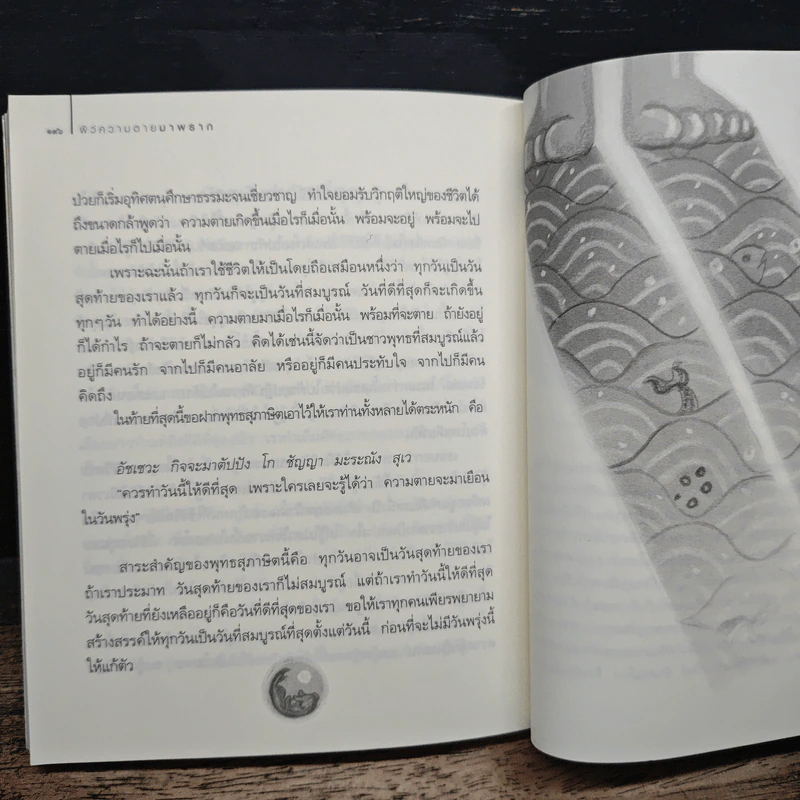 ๑๓๖ ผิวความตายมาพราก
ป่วยก็เริ่มอุทิศตนศึกษาธรรมะจนเชี่ยวชาญ ทำใจยอมรับวิกฤติใหญ่ของชีวิตได้
ถึงขนาดกล้าพูดว่า ความตายเกิดขึ้นเมื่อไรก็เมื่อนั้น พร้อมจะอยู่ พร้อมจะไป
ตายเมื่อไรก็ไปเมื่อนั้น
เพราะฉะนั้นถ้าเราใช้ชีวิตให้เป็นโดยถือเสมือนหนึ่งว่า ทุกวันเป็นวัน
สุดท้ายของเราแล้ว ทุกวันก็จะเป็นวันที่สมบูรณ์ วันที่ดีที่สุดก็จะเกิดขึ้น
ทุกๆวัน ทำได้อย่างนี้ ความตายมาเมื่อไรก็เมื่อนั้น พร้อมที่จะตาย ถ้ายังอยู่
ก็ได้กำไร ถ้าจะตายก็ไม่กลัว คิดได้เช่นนี้จัดว่าเป็นชาวพุทธที่สมบูรณ์แล้ว
อยู่ก็มีคนรัก จากไปก็มีคนอาลัย หรืออยู่ก็มีคนประทับใจ จากไปก็มีคน
คิดถึง
ในท้ายที่สุดนี้ขอฝากพุทธสุภาษิตเอาไว้ให้เราท่านทั้งหลายได้ตระหนัก คือ
อัชเชวะ กิจจะมาตัปปัง โก ชัญญา มะระณัง สุเว
"ควรทำวันนี้ให้ดีที่สุด เพราะใครเลยจะรู้ได้ว่า ความตายจะมาเยือน
ในวันพรุ่ง"
สาระสำคัญของพุทธสุภาษิตนี้คือ ทุกวันอาจเป็นวันสุดท้ายของเรา
ถ้าเราประมาท วันสุดท้ายของเราก็ไม่สมบูรณ์ แต่ถ้าเราทำวันนี้ให้ดีที่สุด
วันสุดท้ายที่ยังเหลืออยู่ก็คือวันที่ดีที่สุดของเรา ขอให้เราทุกคนเพียรพยายาม
สร้างสรรค์ให้ทุกวันเป็นวันที่สมบูรณ์ที่สุดตั้งแต่วันนี้ ก่อนที่จะไม่มีวันพรุ่งนี้
ให้แก้ตัว